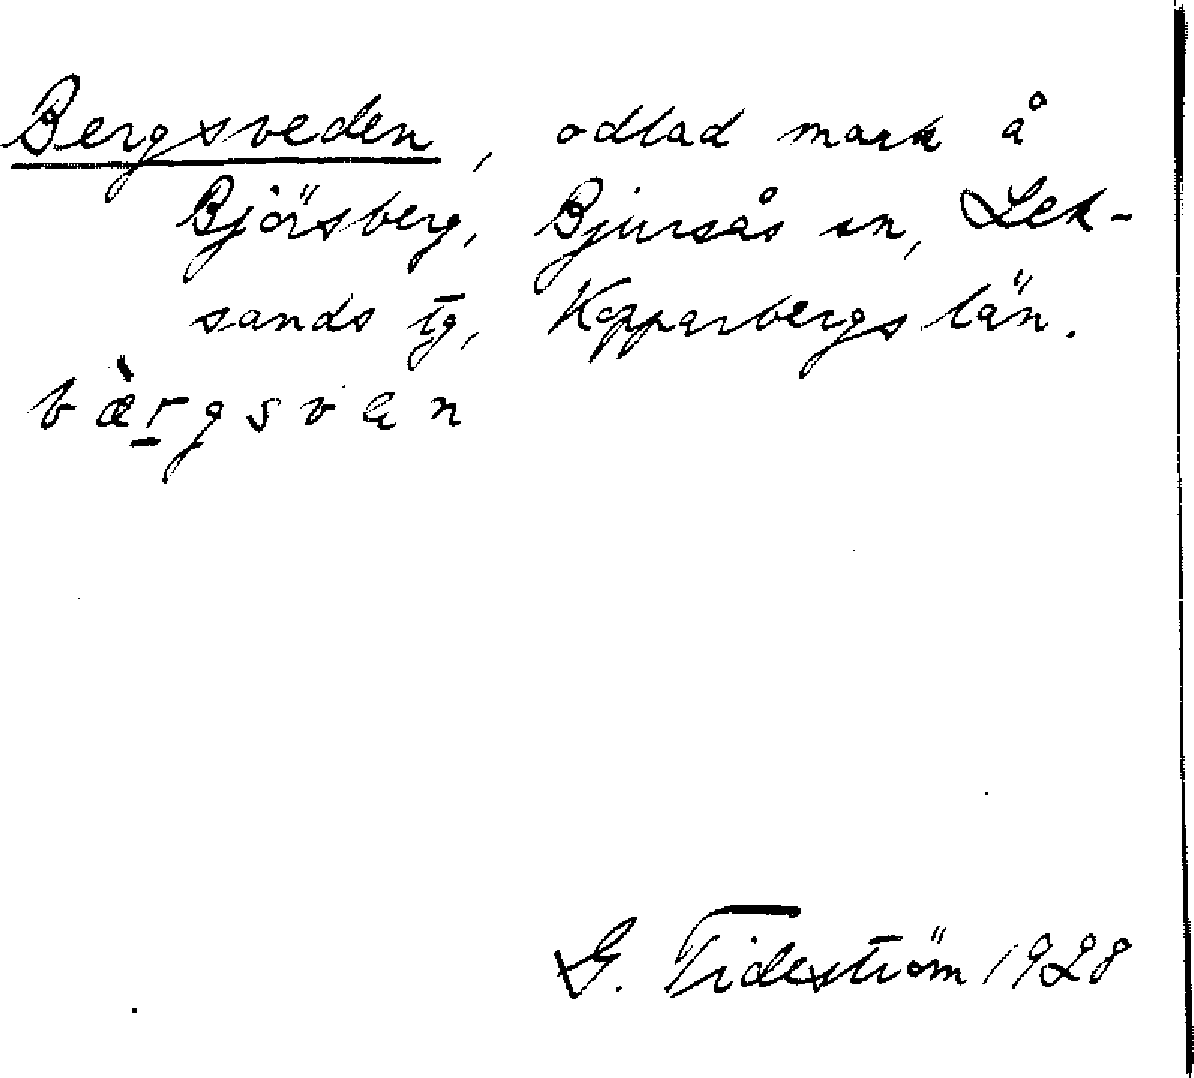 Bergsveden, odlad mark å
Björsberg, Bjursås sn, Lek-
sands tg, Kopparbergs län.
bæ̀rgsvan
G. Tideström 1928